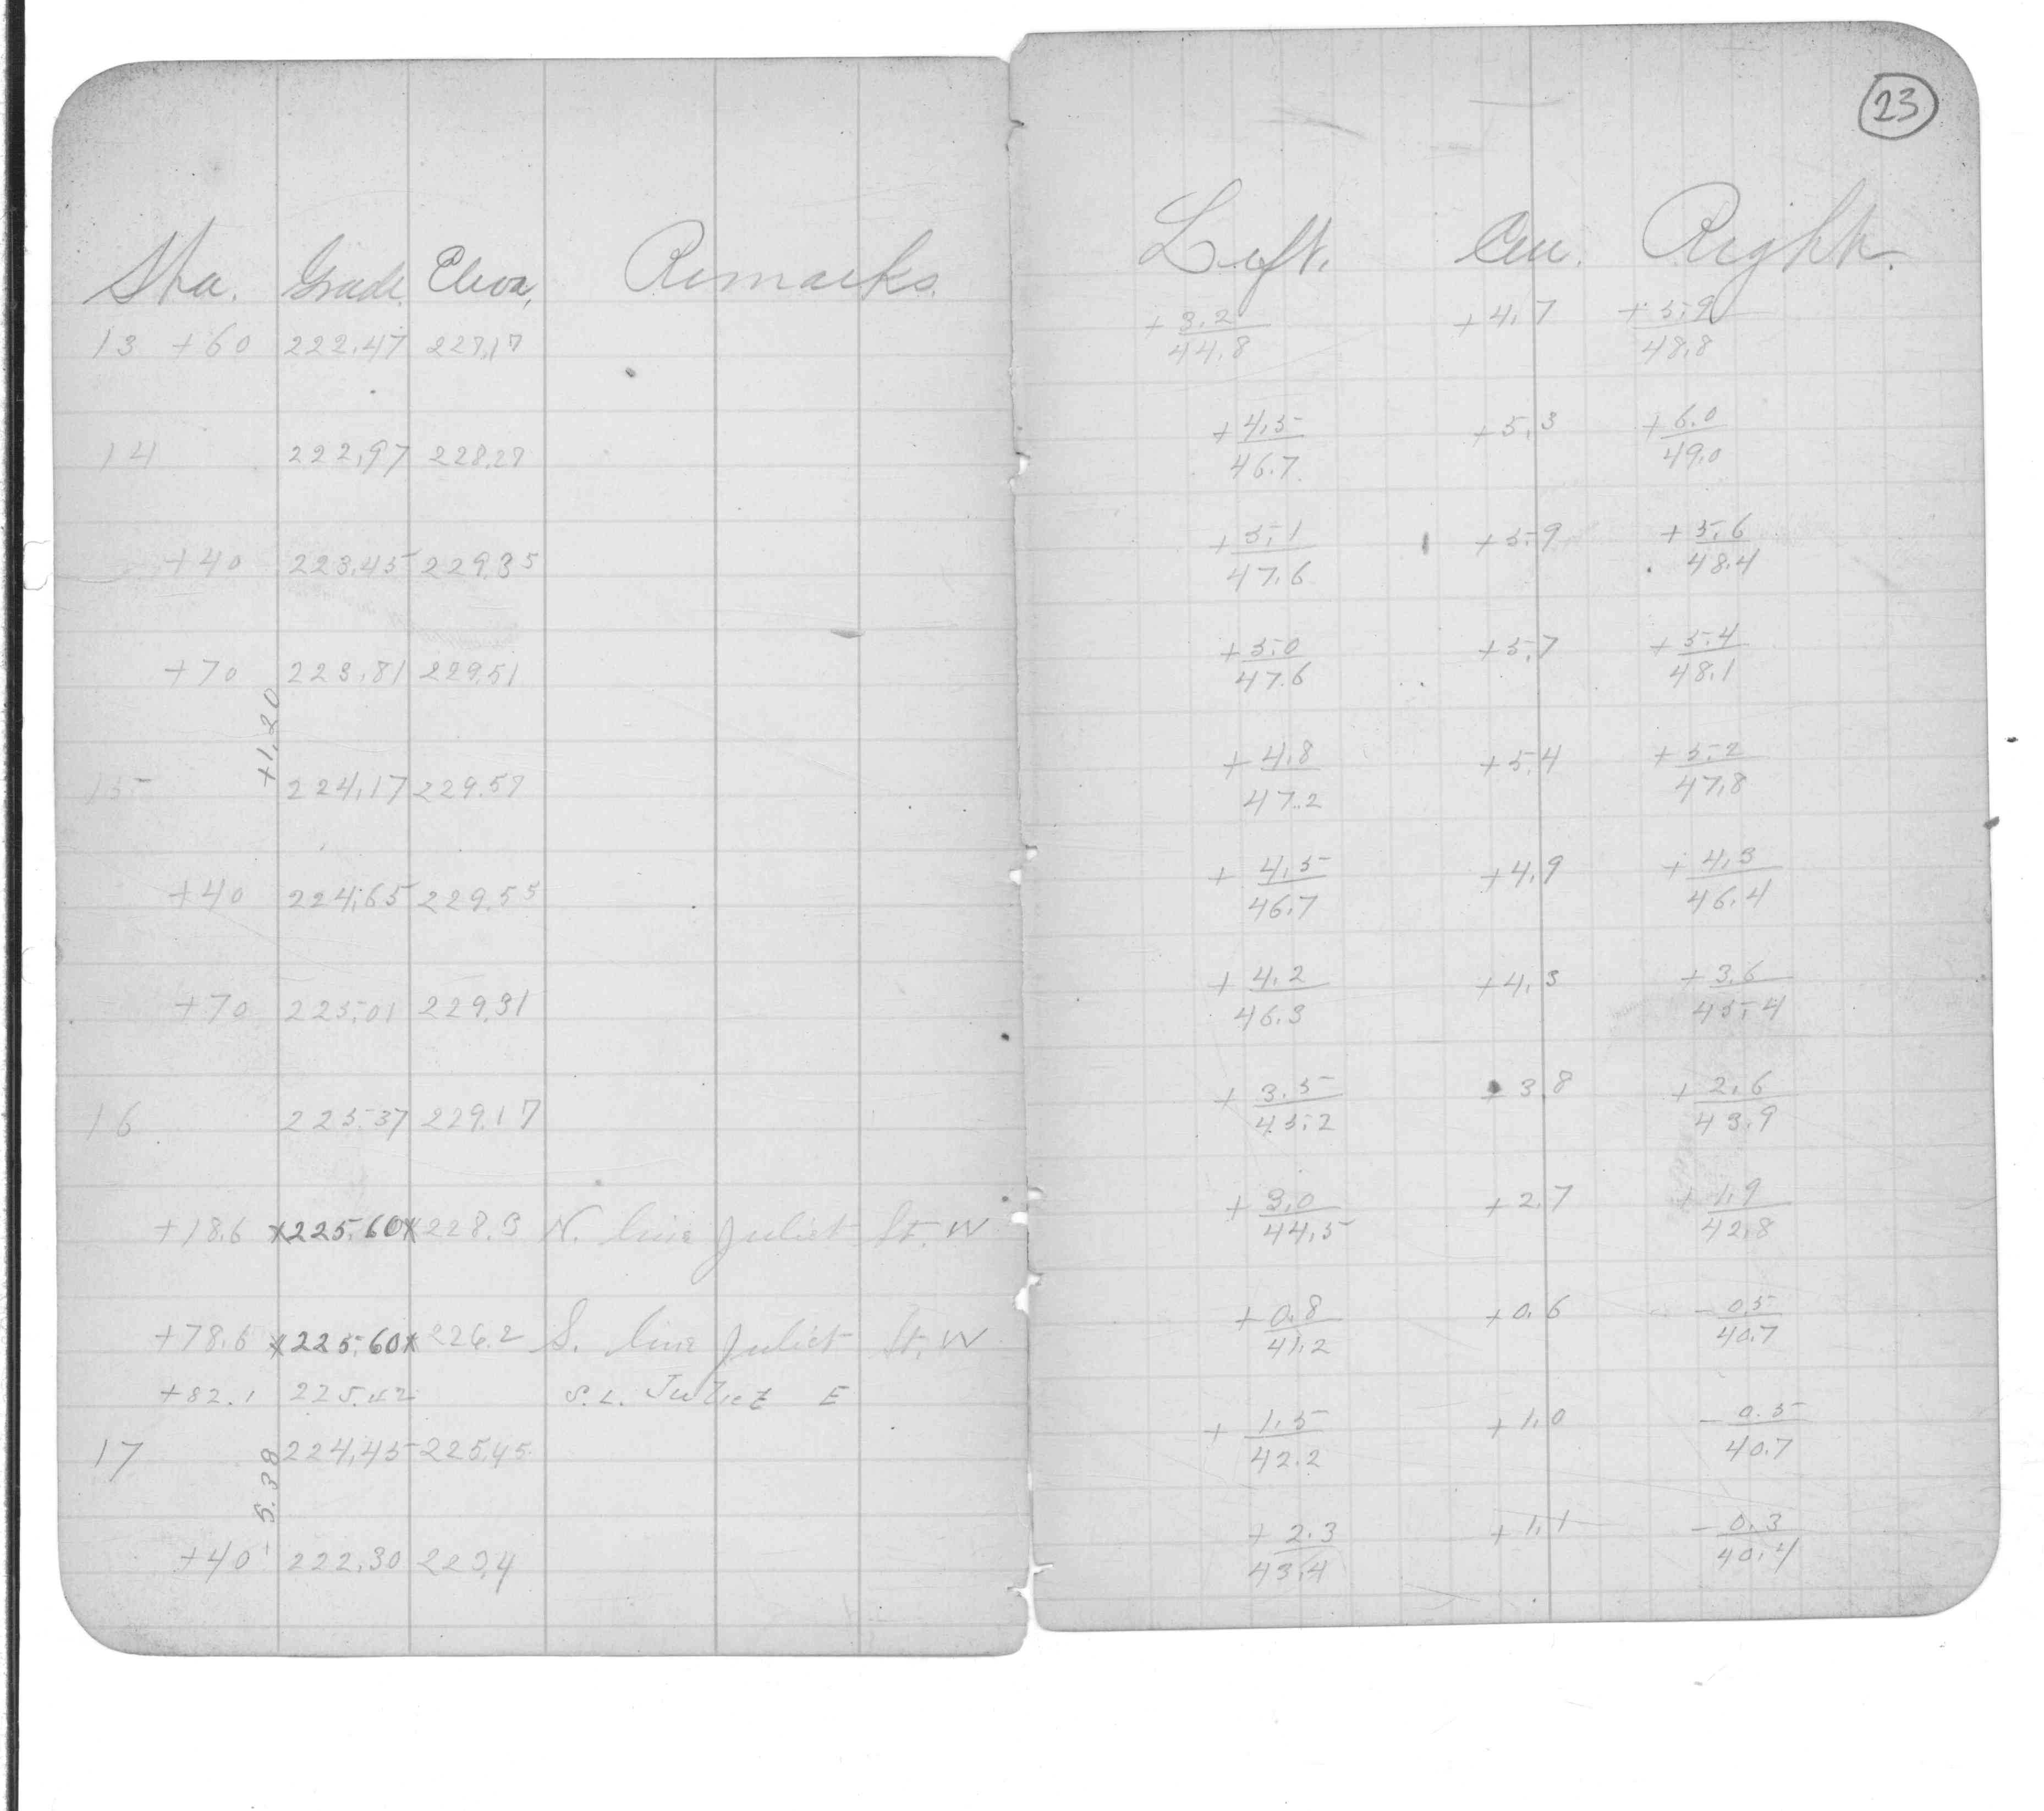 23
Sta. Grade Eleva, Remarks. Left. Cen. Right.
13 +60 222.47 227.17 +3.2/44.8 +4.7 +5.9/48.8
14 222.97 228.27 +4.5/46.7 +5.3 +6.0/49.0
+40 223.45 229.35 +5.1/47.6 +5.9 +5.6/48.4
+70 223.81 229.51 +5.0/47.6 +5.7 +5.4/48.1
+1.20
15 224.17 229.57 +4.8/47.2 +5.4 +5.2/47.8
+40 224.65 229.55 +4.5/46.7 +4.9 +4.3/46.4
+70 225.01 229.31 +4.2/46.3 +4.3 +3.6/45.4
16 225.37 229.17 +3.5/45.2 +3.8 +2.6/43.9
+18.6 x225.60x 228.3 N. line Juliet St. W +3.0/44.5 +2.7 +1.9/42.8
+78.6 x225.60x 226.2 S. line Juliet St. W +0.8/41.2 +0.6 -0.5/40.7
+82.1 225.42 S.L. Juliet E
17 224.45 225.45 +1.5/42.2 +1.0 -0.5/40.7
5.38
+40 222.30 223.4 +2.3/43.4 +1.1 -0.3/40.4